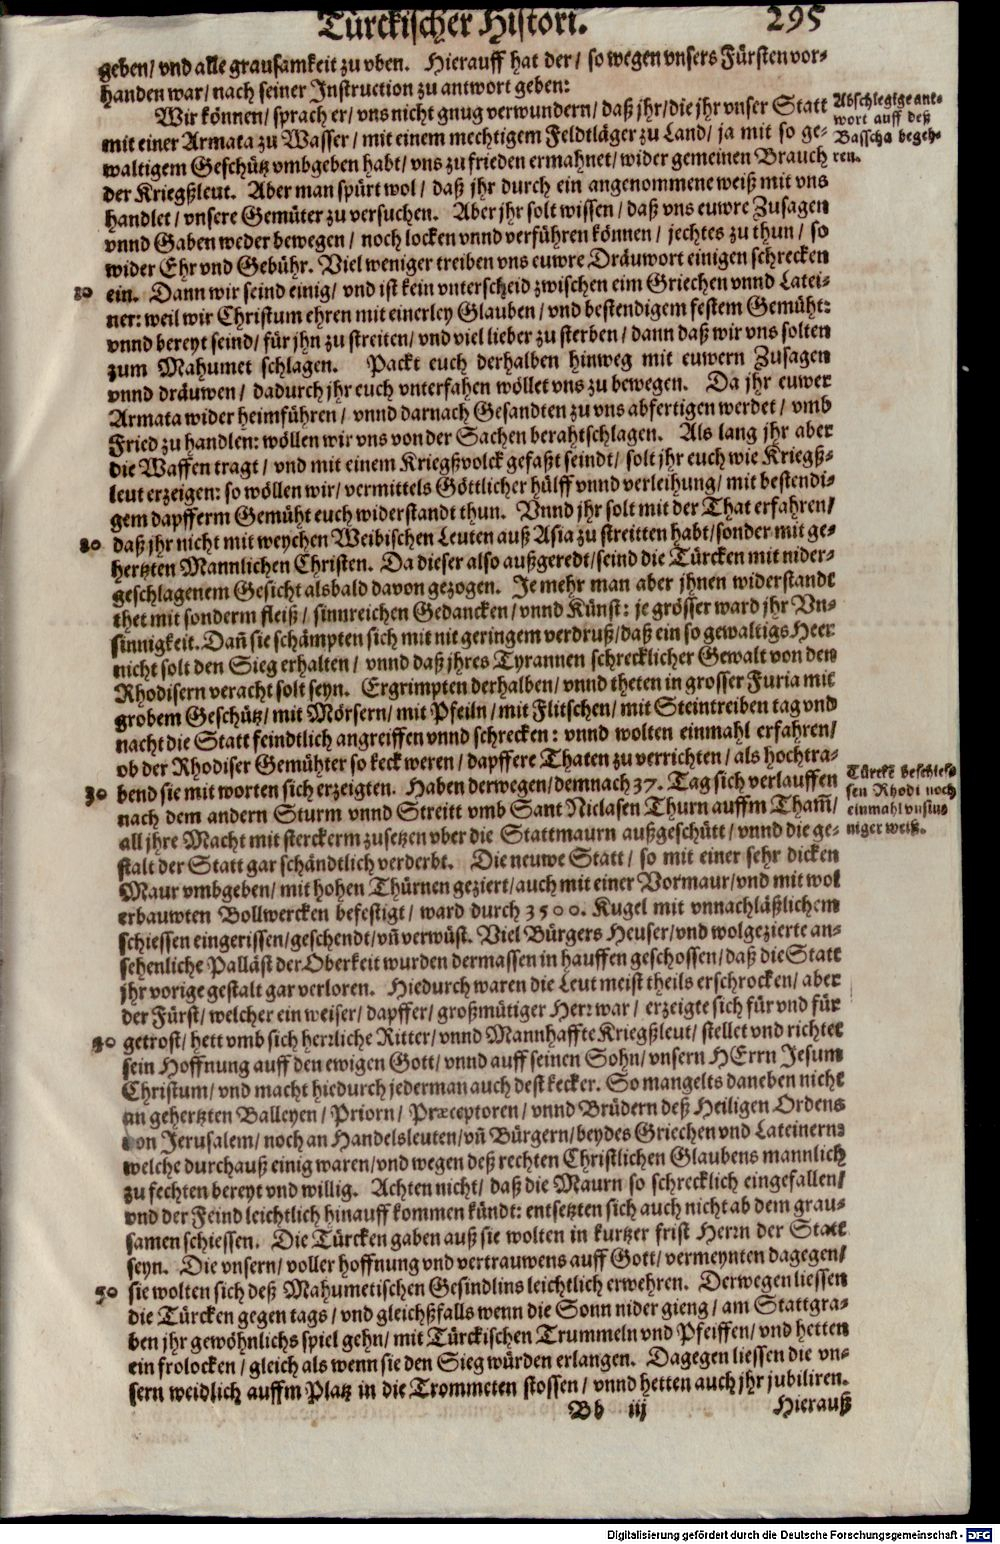 Türckischer Histori. 295
geben/ vnd alle grausamkeit zu vben. Hierauff hat der/ so wegen vnsers Fürsten vor-
handen war/ nach seiner Instruction zu antwort geben:
Wir können/ sprach er/ vns nicht gnug verwundern/ daß jhr/ die jhr vnser Statt
mit einer Armata zu Wasser/ mit einem mechtigem Feldtläger zu Land/ ja mit so ge-
waltigem Geschütz vmbgeben habt/ vns zu frieden ermahnet/ wider gemeinen Brauch
der Kriegßleut. Aber man spürt wol/ daß jhr durch ein angenommene weiß mit vns
handlet/ vnsere Gemüter zu versuchen. Aber jhr solt wissen/ daß vns euwre Zusagen
vnnd Gaben weder bewegen/ noch locken vnnd verführen können/ jechtes zu thun/ so
wider Ehr vnd Gebühr. Viel weniger treiben vns euwre Dräuwort einigen schrecken
10 ein. Dann wir seind einig/ vnd ist kein vnterscheid zwischen eim Griechen vnnd Latei-
ner: weil wir Christum ehren mit einerley Glauben/ vnd bestendigem festem Gemüht:
vnnd bereyt seind/ für jhn zu streiten/ vnd viel lieber zu sterben/ dann daß wir vns solten
zum Mahumet schlagen. Packt euch derhalben hinweg mit euwern Zusagen
vnnd dräuwen/ dadurch jhr euch vnterfahen wöllet vns zu bewegen. Da jhr euwer
Armata wider heimführen/ vnnd darnach Gesandten zu vns abfertigen werdet/ vmb
Fried zu handlen: wöllen wir vns von der Sachen berahtschlagen. Als lang jhr aber
die Waffen tragt/ vnd mit einem Kriegßvolck gefaßt seindt/ solt jhr euch wie Kriegß-
leut erzeigen: so wöllen wir/ vermittels Göttlicher hülff vnnd verleihung/ mit bestendi-
gem dapfferm Gemüht euch widerstandt thun. Vnnd jhr solt mit der That erfahren/
20 daß jhr nicht mit weychen Weibischen Leuten auß Asia zu streitten habt/ sonder mit ge-
hertzten Mannlichen Christen. Da dieser also außgeredt/ seind die Türcken mit nider-
geschlagenem Gesicht alsbald davon gezogen. Je mehr man aber jhnen widerstandt
thet mit sonderm fleiß/ sinnreichen Gedancken/ vnnd Künst: je grösser ward jhr Vn-
sinnigkeit. Dañ sie schämpten sich mit nit geringem verdruß/ daß ein so gewaltigs Heer
nicht solt den Sieg erhalten/ vnnd daß jhres Tyrannen schrecklicher Gewalt von den
Rhodisern veracht solt seyn. Ergrimpten derhalben/ vnnd theten in grosser Furia mit
grobem Geschütz/ mit Mörsern/ mit Pfeiln/ mit Flitschen/ mit Steintreiben tag vnd
nacht die Statt feindtlich angreiffen vnnd schrecken: vnnd wolten einmahl erfahren/
ob der Rhodiser Gemühter so keck weren/ dapffere Thaten zu verrichten/ als hochtra-
30 bend sie mit worten sich erzeigten. Haben derwegen/ demnach 37. Tag sich verlauffen
nach dem andern Sturm vnnd Streitt vmb Sant Niclasen Thurn auffm Tham̃/
all jhre Macht mit sterckerm zusetzen vber die Stattmaurn außgeschütt/ vnnd die ge-
stalt der Statt gar schändtlich verderbt. Die neuwe Statt/ so mit einer sehr dicken
Maur vmbgeben/ mit hohen Thürnen geziert/ auch mit einer Vormaur/ vnd mit wol
erbauwten Bollwercken befestigt/ ward durch 3500. Kugel mit vnnachläßlichem
schiessen eingerissen/ geschendt/ vñ verwüst. Viel Bürgers Heuser/ vnd wolgezierte an-
sehenliche Palläst der Oberkeit wurden dermassen in hauffen geschossen/ daß die Statt
jhr vorige gestalt gar verloren. Hiedurch waren die Leut meist theils erschrocken/ aber
der Fürst/ welcher ein weiser/ dapffer/ großmütiger Herr war/ erzeigte sich für vnd für
40 getrost/ hett vmb sich herrliche Ritter/ vnnd Mannhaffte Kriegßleut/ stellet vnd richtet
sein Hoffnung auff den ewigen Gott/ vnnd auff seinen Sohn/ vnsern HErrn Jesum
Christum/ vnd macht hiedurch jederman auch dest kecker. So mangelts daneben nicht
an gehertzten Balleyen/ Priorn/ Præceptoren/ vnnd Brüdern deß Heiligen Ordens
von Jerusalem/ noch an Handelsleuten/ vñ Bürgern/ beydes Griechen vnd Lateinern:
welche durchauß einig waren/ vnd wegen deß rechten Christlichen Glaubens mannlich
zu fechten bereyt vnd willig. Achten nicht/ daß die Maurn so schrecklich eingefallen/
vnd der Feind leichtlich hinauff kommen kündt: entsetzten sich auch nicht ab dem grau-
samen schiessen. Die Türcken gaben auß sie wolten in kurtzer frist Herrn der Statt
seyn. Die vnsern/ voller hoffnung vnd vertrauwens auff Gott/ vermeynten dagegen/
50 sie wolten sich deß Mahumetischen Gesindlins leichtlich erwehren. Derwegen liessen
die Türcken gegen tags/ vnd gleichßfalls wenn die Sonn nider gieng/ am Stattgra-
ben jhr gewöhnlichs spiel gehn/ mit Türckischen Trummeln vnd Pfeiffen/ vnd hetten
ein frolocken/ gleich als wenn sie den Sieg würden erlangen. Dagegen liessen die vn-
sern weidlich auffm Platz in die Trommeten stossen/ vnnd hetten auch jhr jubiliren.
Bb iij Hierauß
Abschlegige ant-
wort auff deß
Basscha begeh-
ren.
Türckē beschies-
sen Rhodi noch
einmahl vnsin-
niger weiß.
Digitalisierung gefördert durch die Deutsche Forschungsgemeinschaft - DFG